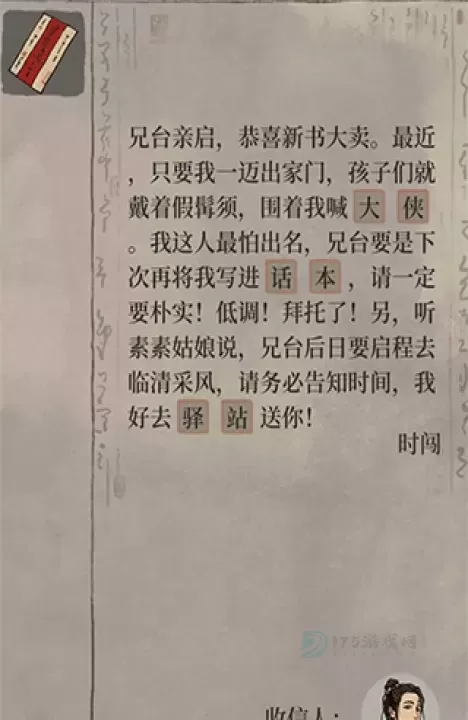 兄台亲启，恭喜新书大卖。最近
，只要我一迈出家门，孩子们就
戴着假髯须，围着我喊大侠
。我这人最怕出名，兄台要是下
次再将我写进话本，请一定
要朴实！低调！拜托了！另，听
素素姑娘说，兄台后日要启程去
临清采风，请务必告知时间，我
好去驿站送你！
时闯
175游戏网
收信人：